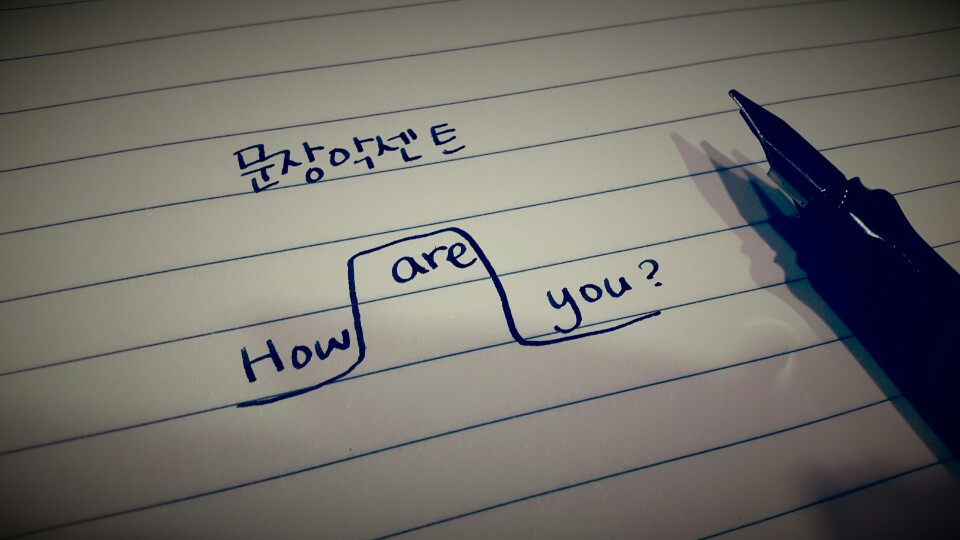 문장악센트
How are you?